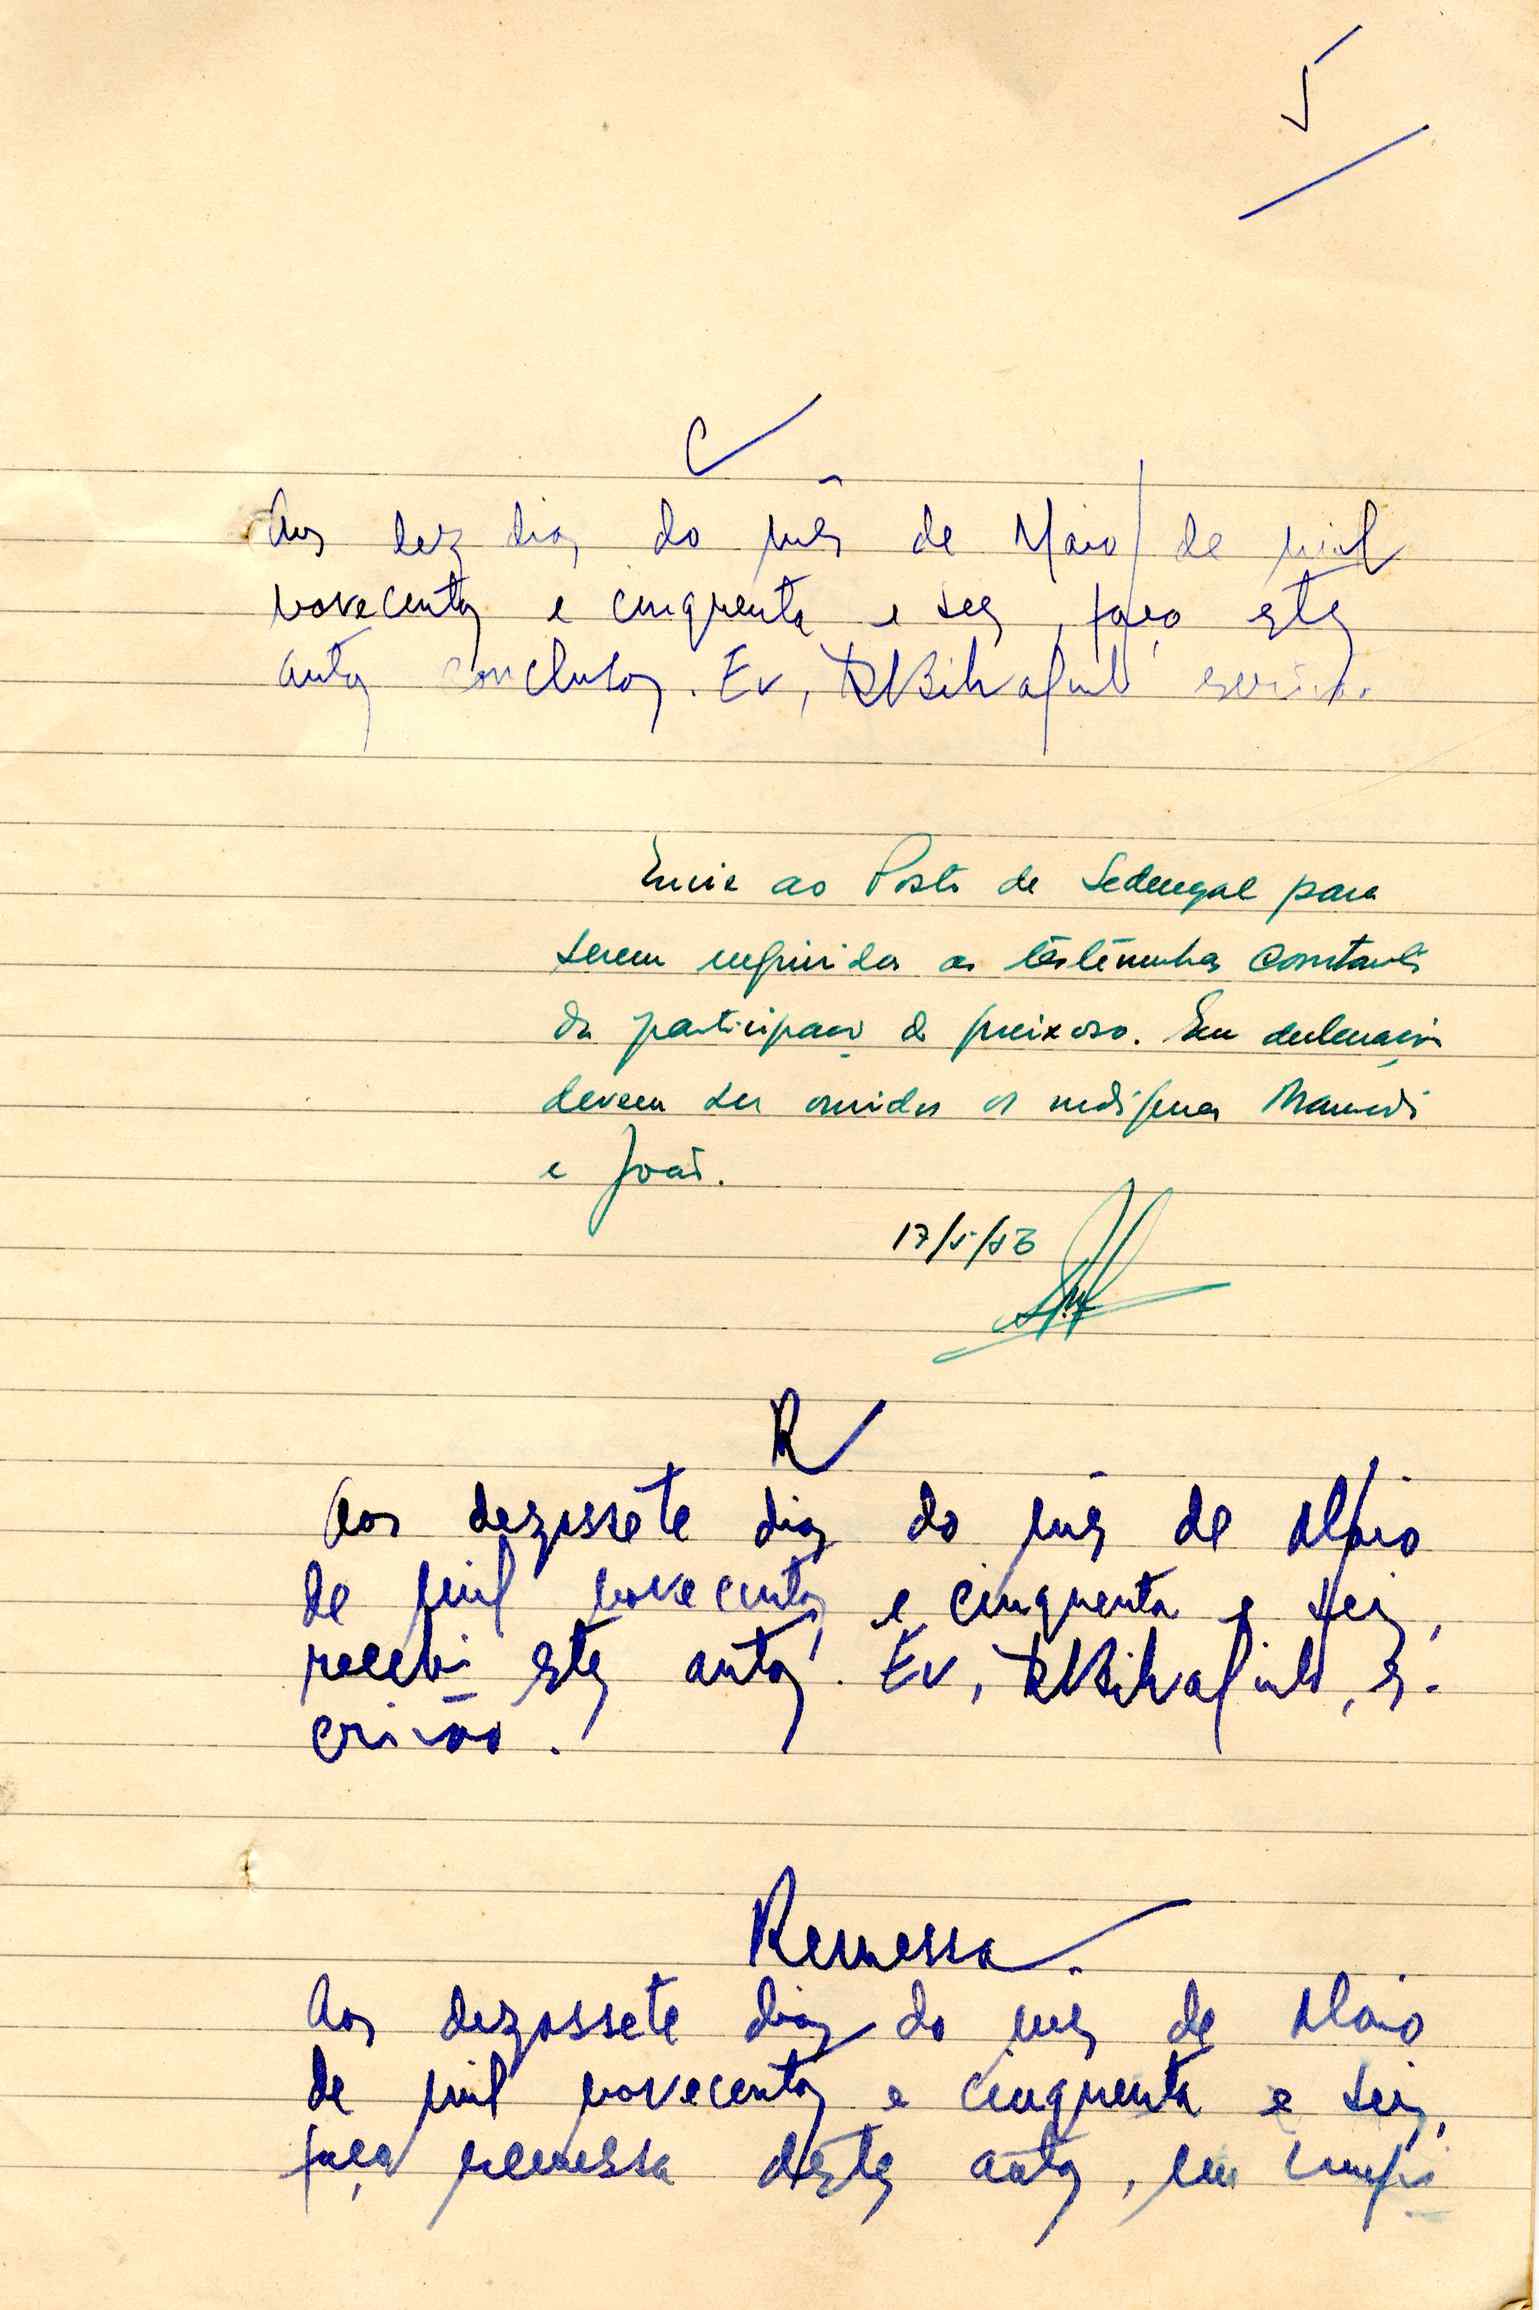 5
C
Aos dez dias do mês de Maio de mil
novecentos e cinquenta e seis, faço estes
autos conclusos. Eu, escrivão.
Envie ao Posto de Sedengal para
serem inquiridas as testemunhas constantes
da participação do queixoso. Em declarações
devem ser ouvidos os indígenas Mamadi
e João.
17/5/56
R
Aos dezassete dias do mês de Maio
de mil novecentos e cinquenta e seis,
recebi estes autos. Eu, es-
crivão.
Remessa.
Aos dezassete dias do mês de Maio
de mil novecentos e cinquenta e seis,
faço remessa destes autos, em cumpri